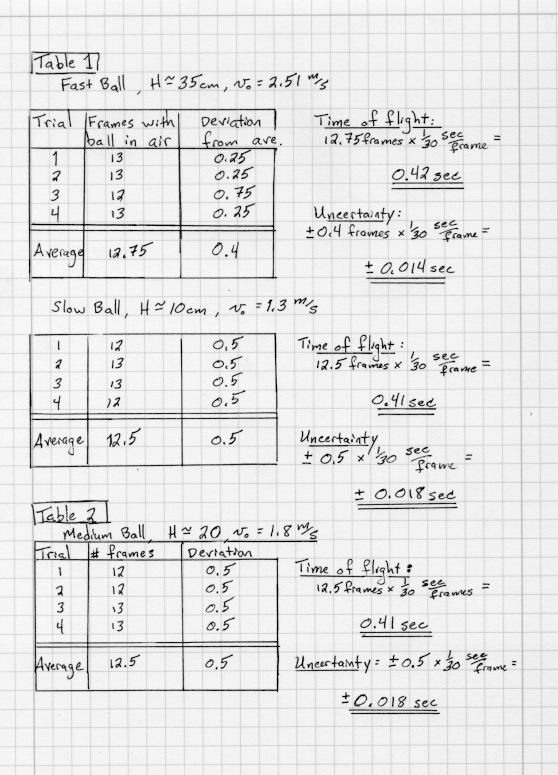 Table 1
Fast Ball , H ≃ 35cm, v₀ = 2.51 m/s
Trial Frames with ball in air Deviation from ave.
1 13 0.25
2 13 0.25
3 12 0.75
4 13 0.25
Average 12.75 0.4
Time of flight:
12.75 frames × 1/30 sec/frame =
0.42 sec
Uncertainty:
±0.4 frames × 1/30 sec/frame =
± 0.014 sec
Slow Ball, H ≃ 10cm, v₀ = 1.3 m/s
1 12 0.5
2 13 0.5
3 13 0.5
4 12 0.5
Average 12.5 0.5
Time of flight:
12.5 frames × 1/30 sec/frame =
0.41 sec
Uncertainty
± 0.5 × 1/30 sec/frame =
± 0.018 sec
Table 2
Medium Ball, H ≃ 20, v₀ = 1.8 m/s
Trial # frames Deviation
1 12 0.5
2 12 0.5
3 13 0.5
4 13 0.5
Average 12.5 0.5
Time of flight:
12.5 frames × 1/30 sec/frames =
0.41 sec
Uncertainty = ±0.5 × 1/30 sec/frame =
±0.018 sec